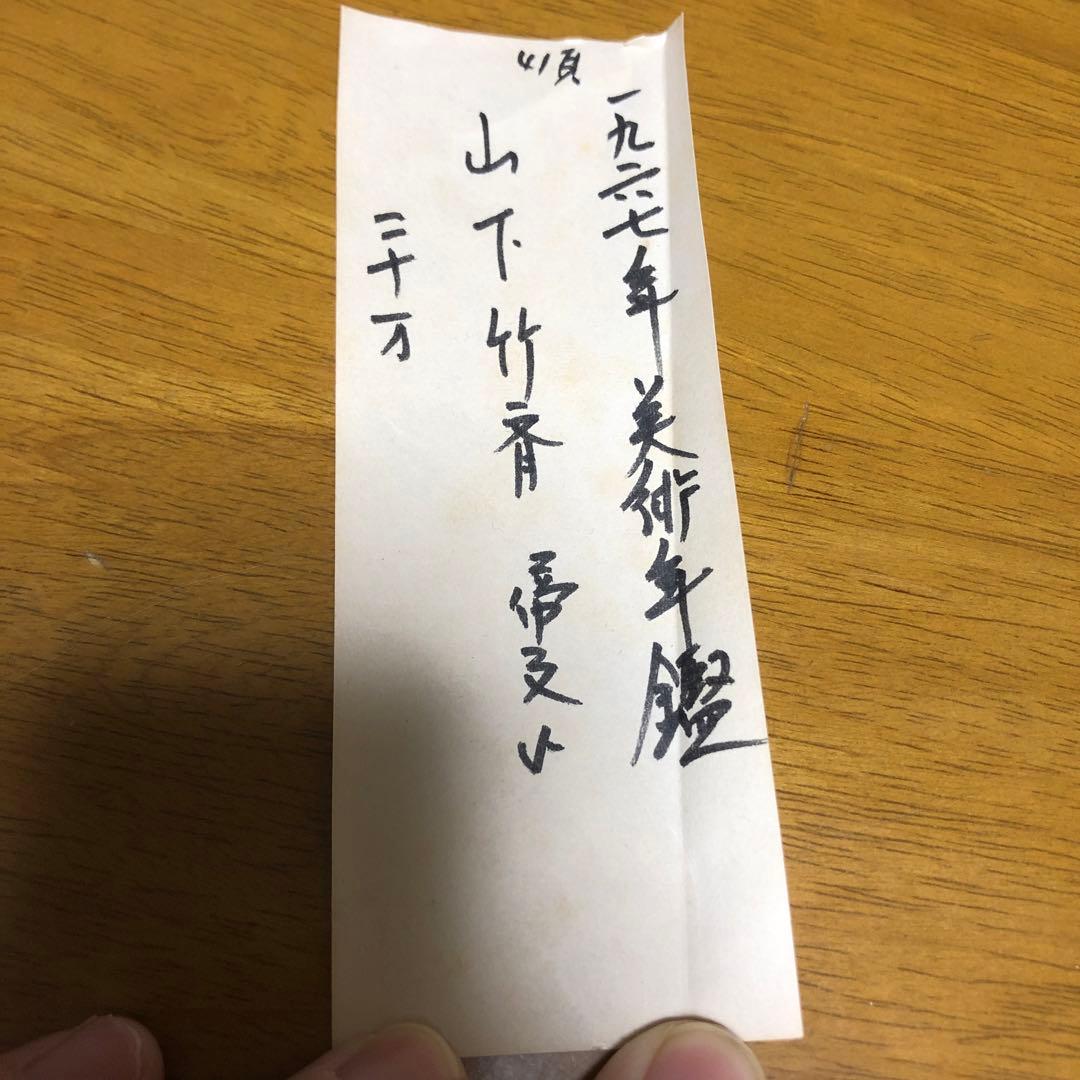 一九六七年美術年鑑
41頁
山下竹斉
二十万